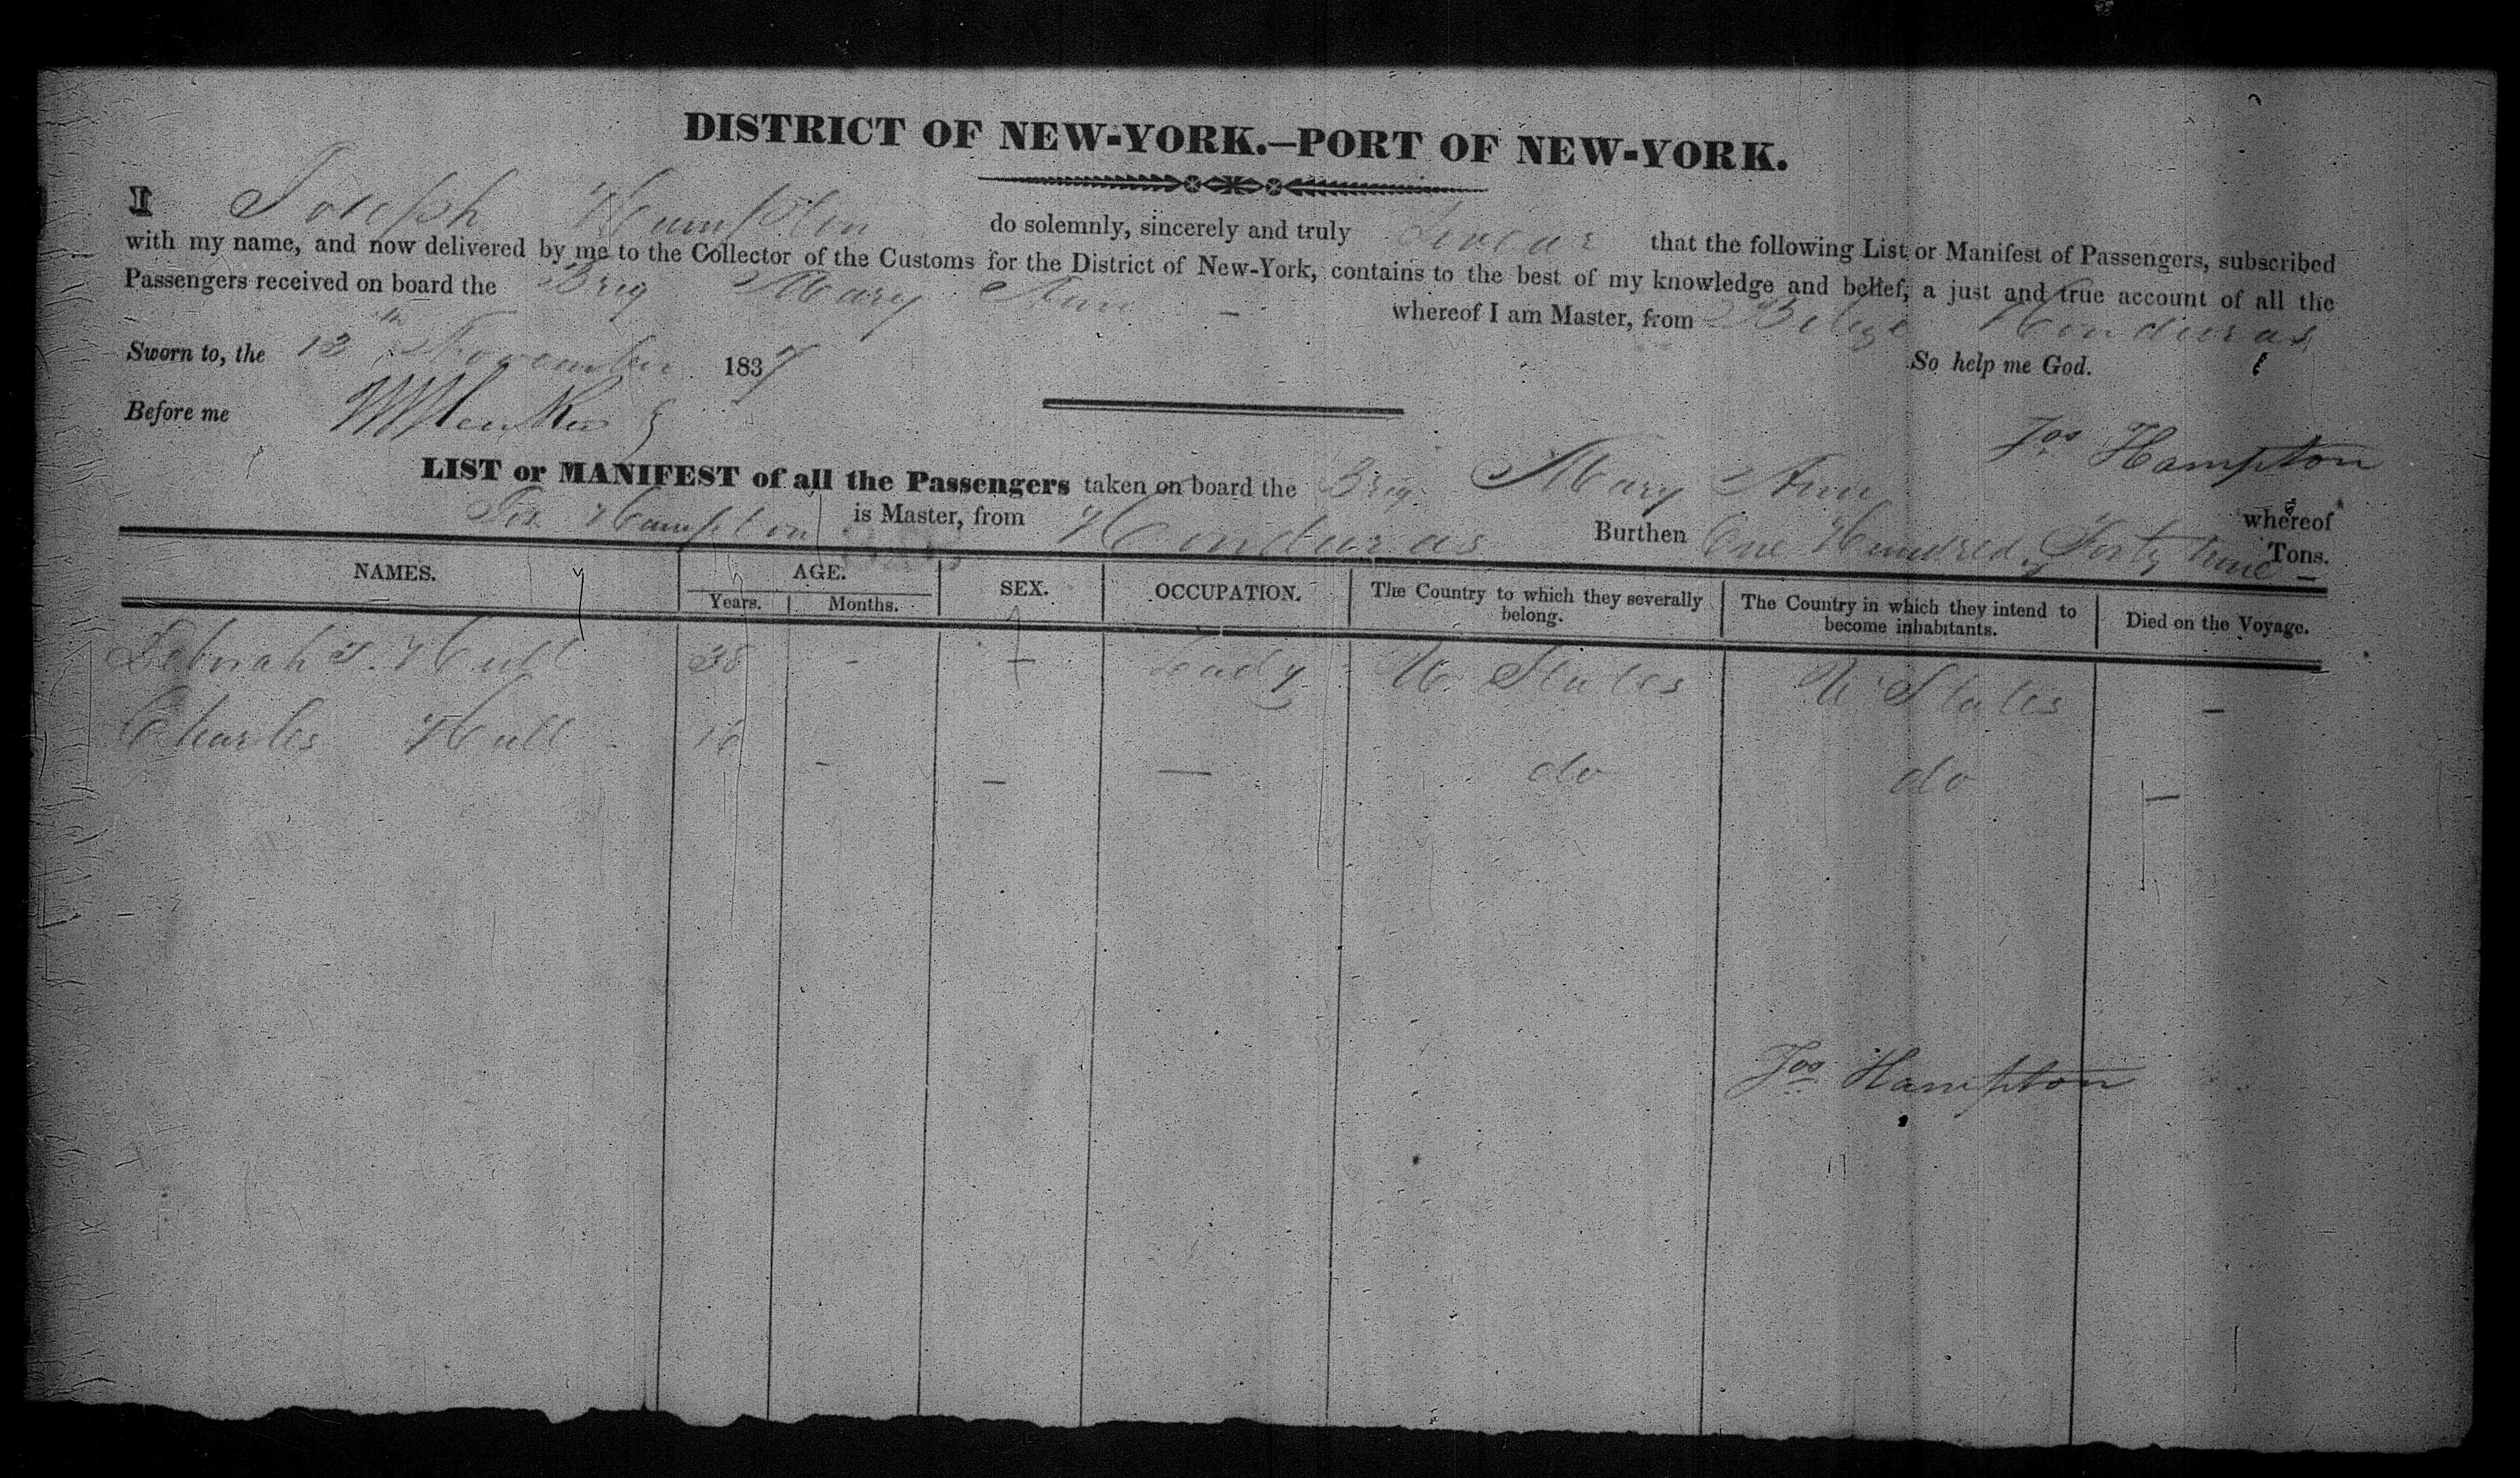 DISTRICT OF NEW-YORK.—PORT OF NEW-YORK.
I Joseph Hampton do solemnly, sincerely and truly swear that the following List or Manifest of Passengers, subscribed
with my name, and now delivered by me to the Collector of the Customs for the District of New-York, contains to the best of my knowledge and belief, a just and true account of all the
Passengers received on board the Brig Mary Ann - whereof I am Master, from Belize Honduras
Sworn to, the 13th November 1837 So help me God.
Before me
Jos Hampton
LIST or MANIFEST of all the Passengers taken on board the Brig Mary Ann whereof
Jos Hampton is Master, from Honduras Burthen One Hundred & Forty Tons.
NAMES. AGE. SEX. OCCUPATION. The Country to which they severally belong. The Country in which they intend to become inhabitants. Died on the Voyage.
Years. Months.
Deborah Hull 38 - - Lady U. States U. States -
Charles Hull 16 - - — do do —
Jos Hampton